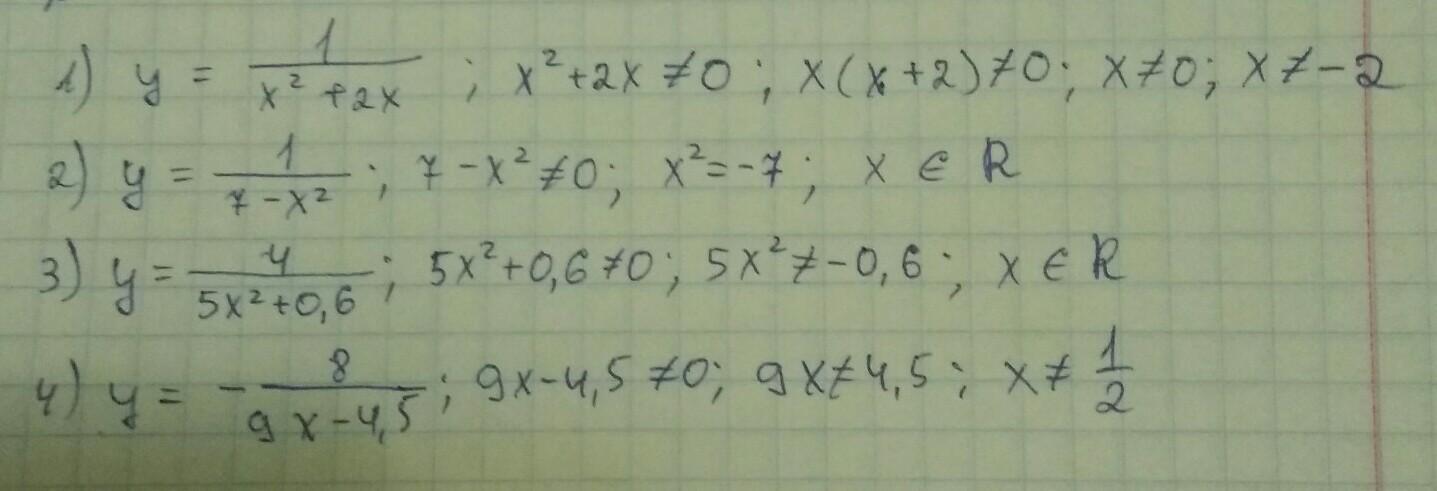 1) y = 1/(x² + 2x) ; x² + 2x ≠ 0 ; x(x + 2) ≠ 0 ; x ≠ 0 ; x ≠ -2
2) y = 1/(7 - x²) ; 7 - x² ≠ 0 ; x² = -7 ; x ∈ R
3) y = 4/(5x² + 0,6) ; 5x² + 0,6 ≠ 0 ; 5x² ≠ -0,6 ; x ∈ R
4) y = - 8/(9x - 4,5) ; 9x - 4,5 ≠ 0 ; 9x ≠ 4,5 ; x ≠ 1/2